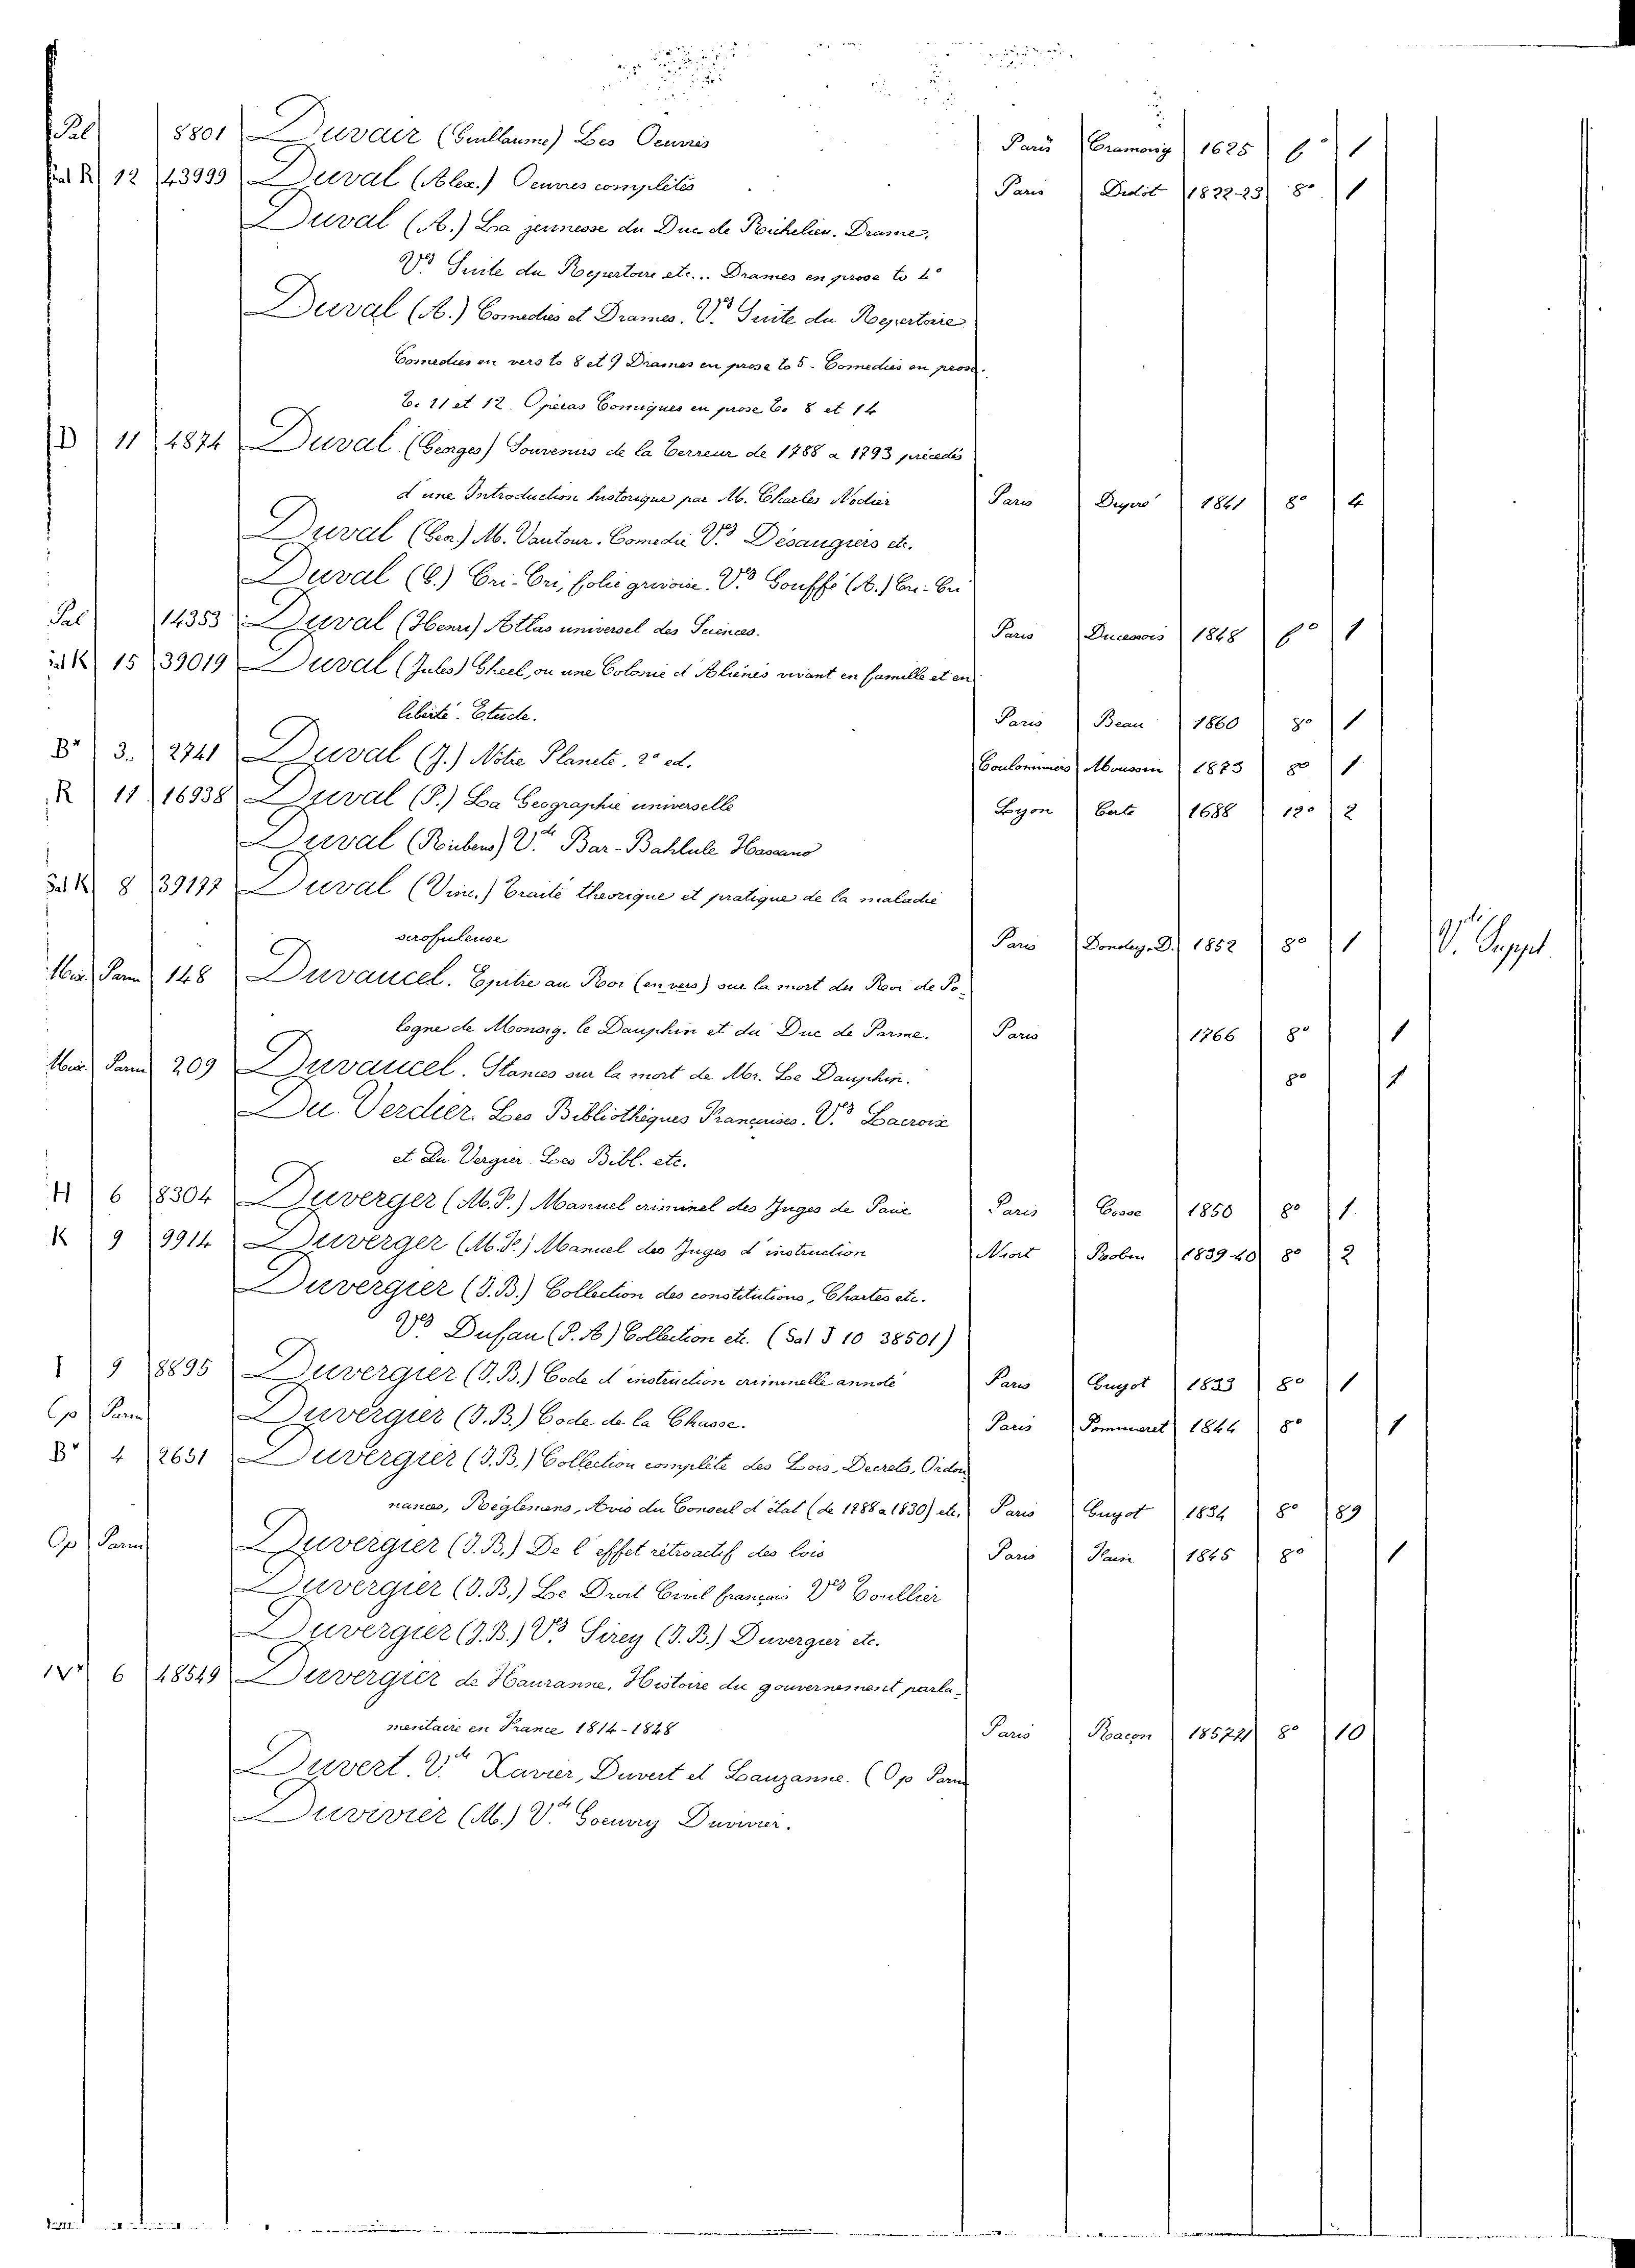 Pal 8801 Duvair (Guillaume) Les Oeuvres Paris Cramoisy 1625 6° 1
Sal R 12 43999 Duval (Alex.) Oeuvres complètes Paris Didot 1822-23 8° 1
Duval (A.) La jeunesse du Duc de Richelieu. Drame.
Suite du Repertoire etc... Drames en prose to 4°
Duval (A.) Comedies et Drames. Suite du Repertoire
Comedies en vers to 8 et 9 Drames en prose to 5 - Comedies en prose.
to. 11 et 12. Operas Comiques en prose to 8 et 14
D 11 4874 Duval (Georges) Souvenirs de la Terreur de 1788 a 1793 précedés
d'une Introduction historique par M. Charles Nodier Paris 1841 8° 4
Duval (Geo.) M. Vautour. Comedie Désaugiers etc.
Duval (G.) Cri-Cri, folie grivoise. Gouffé (A.) Cri-Cri
Pal 14353 Duval (Henri) Atlas universel des Sciences. Paris 1848 6° 1
Sal K 15 39019 Duval (Jules) Gheel, ou une Colonie d'Aliénés vivant en famille et en
liberté. Etude. Paris Beau 1860 8° 1
Br 3. 2741 Duval (J.) Notre Planete. 2e ed. Coulommiers Moussin 1873 8° 1
R 11 16938 Duval (P.) La Geographie universelle Lyon 1688 12° 2
Duval (Rubens) Bar-Bahlule Hassano
Sal K 8 39177 Duval (Vinc.) Traité theorique et pratique de la maladie
scrofuleuse Paris Dondey-D. 1852 8° 1 V. Suppl.
Misc. Parm 148 Duvaucel. Epitre au Roi (en vers) sur la mort du Roi de Po-
logne de Monsig. le Dauphin et du Duc de Parme. Paris 1766 8° 1
Misc. Parm 209 Duvaucel. Stances sur la mort de Mr. Le Dauphin. 8° 1
Du Verdier. Les Bibliothèques Françaises. Lacroix
et du Vergier. Les Bibl. etc.
H 6 8304 Duverger (M.F.) Manuel criminel des Juges de Paix Paris Cosse 1850 8° 1
K 9 9914 Duverger (M.F.) Manuel des Juges d'instruction Niort Robin 1839-40 8° 2
Duvergier (J.B.) Collection des constitutions, Chartes etc.
Dufau (P.A) Collection etc. (Sal J 10 38501)
I 9 8895 Duvergier (J.B.) Code d'instruction criminelle annoté Paris Guyot 1833 8° 1
Op Parm Duvergier (J.B.) Code de la Chasse. Paris Pommeret 1844 8° 1
Br 4 2651 Duvergier (J.B.) Collection complète des Lois, Decrets, Ordon
nances, Reglemens, Avis du Conseil d'état (de 1788 a 1830) etc. Paris Guyot 1834 8° 89
Op Parm Duvergier (J.B.) De l'effet rétroactif des lois Paris 1845 8° 1
Duvergier (J.B.) Le Droit Civil français Toullier
Duvergier (J.B.) Sirey (J.B.) Duvergier etc.
6 48549 Duvergier de Hauranne, Histoire du gouvernement parla-
mentaire en France 1814-1848 Paris Racon 185771 8° 10
Duvert. Xavier, Duvert et Lauzanne. (Op Parm
Duvivier (M.) Duvivier.